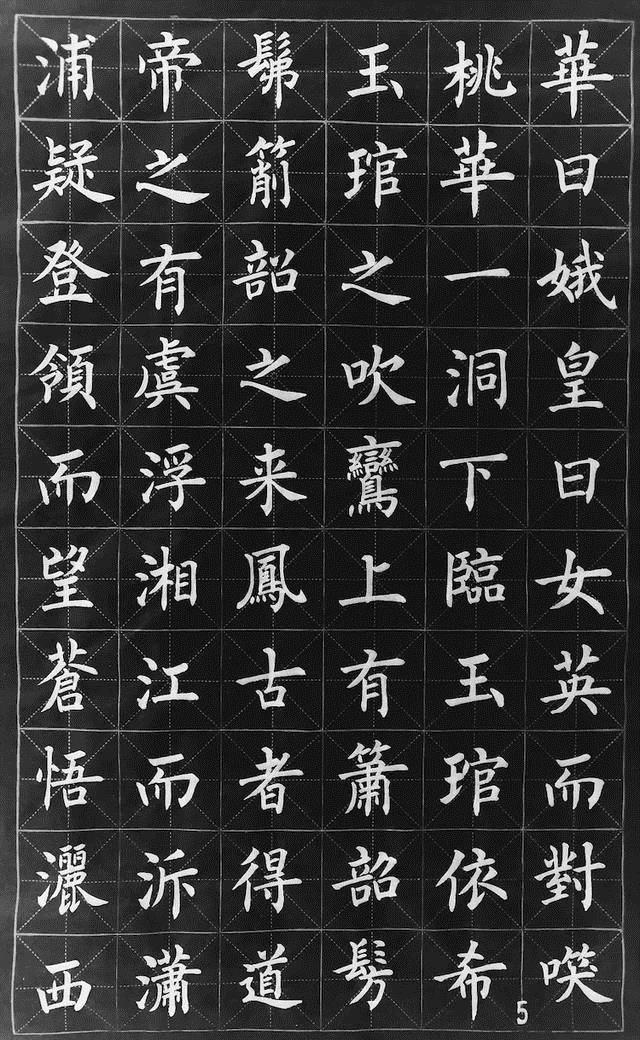 華曰娥皇曰女英而對
桃華一洞下臨玉琯依希
玉琯之吹鸞上有簫韶髣
髴箾韶之来鳳古者得道
帝之有虞浮湘江而泝瀟
浦疑登領而望蒼悟灑西
5